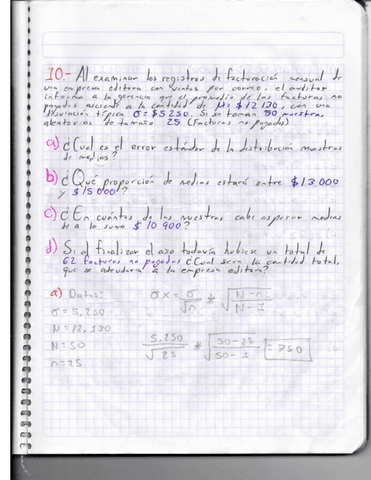 10.- Al examinar los registros di facturación mensual de
una empresa editora con ventas por correo, el auditor
informa a la gerencia que el promedio de las facturas no
pagadas asciende a la cantidad de μ= $12 130, con una
desviación típica σ= $5 250. Si se toman 50 muestras
aleatorias de tamaño 25 (Facturas no pagadas)
a) ¿Cual es el error estándar de la distribución muestras
de medias?
b) ¿Qué proporción de medias estará entre $13 000
y $15 000?
c) ¿En cuántos de las muestras cabe esperar medias
de a lo sumo $10 900?
d) Si al finalizar el año todavía hubiese un total de
62 facturas no pagadas ¿Cual sera la cantidad total,
que se adeudaria a la empresa editora?
a) Datos:
σ = 5,250
N = 12,130
N = 50
n = 25
σx = σ/√n * √N-n/N-1
5,250/√25 * √50-25/50-1 = 750